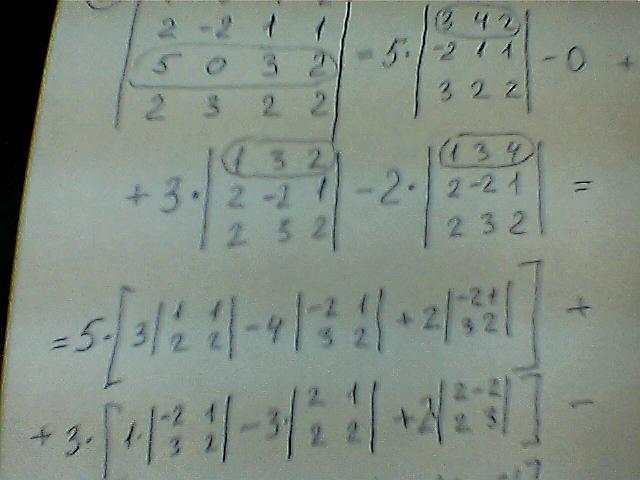 2 -2 1 1
5 0 3 2 = 5· |3 4 2; -2 1 1; 3 2 2| - 0 +
2 3 2 2
+ 3· |1 3 2; 2 -2 1; 2 3 2| - 2· |1 3 4; 2 -2 1; 2 3 2| =
= 5· [3 |1 1; 2 2| - 4 |-2 1; 3 2| + 2 |-2 1; 3 2|] +
+ 3· [1· |-2 1; 3 2| - 3· |2 1; 2 2| + 2 |2 -2; 2 3|] -